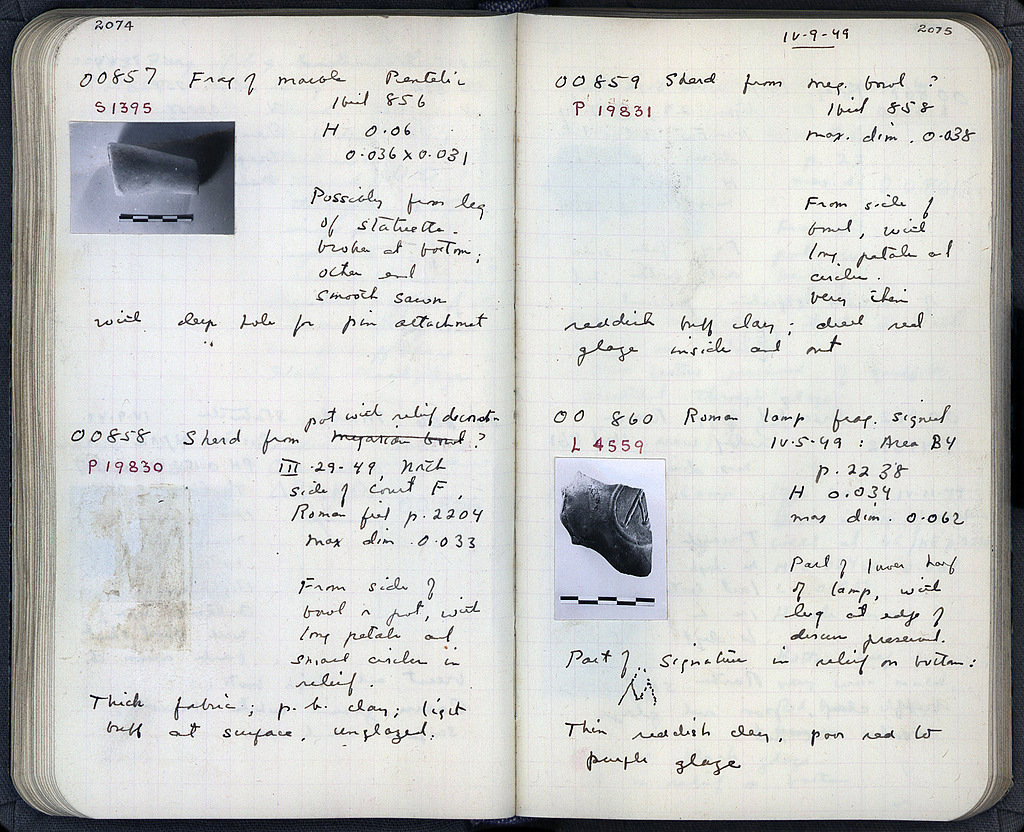 2074
OO 857 Frag of marble Pentelic
S 1395
Ibid 856
H 0.06
0.036 x 0.031
Possibly from leg
of statuette.
broken at bottom;
other end
smooth sawn
with deep hole for pin attachment
pot with relief decorat-
OO 858 Sherd from megarian bowl ?
P 19830
III - 29 - 49, North
side of Court F,
Roman fill p. 2204
max dim . 0.033
From side of
bowl or pot, with
long petals and
small circles in
relief.
Thick fabric ; p. b. clay ; light
buff at surface, unglazed.
2075
IV - 9 - 49
OO 859 Sherd from meg. bowl ?
P 19831
Ibid 858
max. dim . 0.038
From side of
bowl, with
long petals and
circles.
very thin
reddish buff clay ; dull red
glaze inside and out
OO 860 Roman lamp frag. signed
L 4559
IV - 5 - 49 : Area B4
p. 2238
H 0.034
max dim. 0.062
Part of lower half
of lamp, with
lug at edge of
discus preserved.
Part of signature in relief on bottom:
Thin reddish clay, poor red to
purple glaze